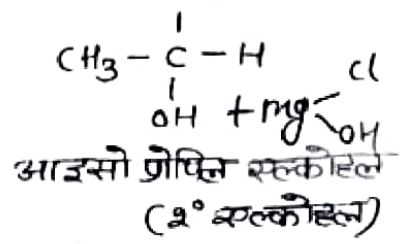 CH3 - C - H
OH + mg Cl
OH
आइसो प्रोपिल एल्कोहल
(2° एल्कोहल)